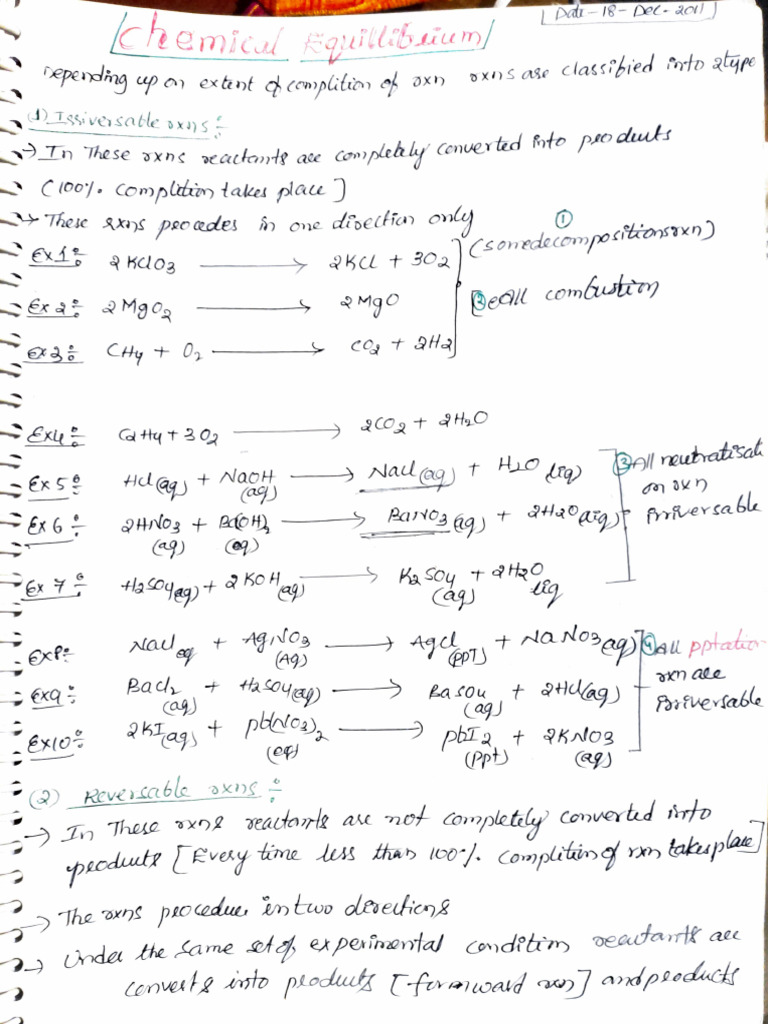 Date-18-Dec-2011
Chemical Equillibrium
Depending up on extent of complition of rxn rxns are classified into 2type
(1) Irriversable rxns :-
→ In These rxns reactants are completely converted into products
[100% complition takes place]
→ These rxns procedes in one direction only
Ex 1 :- 2KClO3 → 2KCl + 3O2
① (somedecompositionsrxn)
Ex 2 :- 2MgO2 → 2MgO
② All combustion
Ex 3 :- CH4 + O2 → CO2 + 2H2
Ex4 :- C2H4 + 3O2 → 2CO2 + 2H2O
Ex 5 :- HCl(aq) + NaOH (aq) → NaCl(aq) + H2O (liq)
③ All neutratisati
on rxn
irriversable
Ex 6 :- 2HNO3 (aq) + Ba(OH)2 (aq) → BaNO3(aq) + 2H2O(liq)
Ex 7 :- H2SO4(aq) + 2KOH(aq) → K2SO4 (aq) + 2H2O liq
Ex8 :- NaCl aq + AgNO3 (Aq) → AgCl (PPT) + NaNO3(aq)
④ All pptation
rxn are
irriversable
Ex9 :- BaCl2 (aq) + H2SO4(aq) → BaSO4 (aq) + 2HCl(aq)
Ex10 :- 2KI(aq) + pb(NO3)2 (aq) → pbI2 (ppt) + 2KNO3 (aq)
(2) Reversable rxns :-
→ In These rxns reactants are not completely converted into
products [Every time less than 100% complition of rxn takes place]
→ The rxns procedue in two directions
→ Under the same set of experimental condition reactants are
converts into products [formward rxn] and products